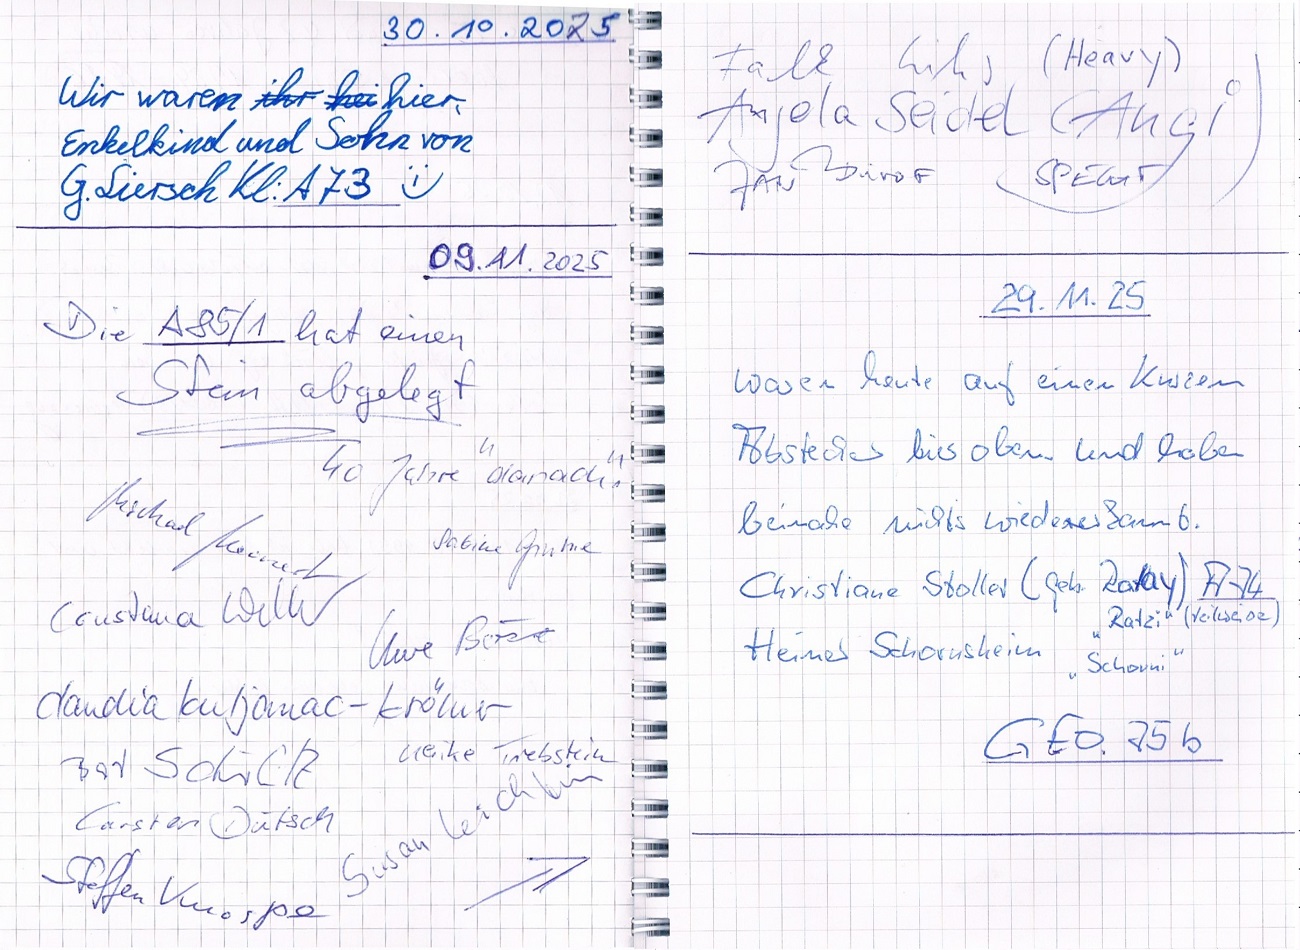 30.10.2025
Wir waren ihr hei hier,
Enkelkind und Sohn von
G. Liersch Kl: A73
09.11.2025
Die A85/1 hat einen
Stein abgelegt
40 Jahre "danach"!
Michael
Sabine
Constana
Uwe
Claudia Kutjamac-Krömer
Heike Triebstein
Carsten Dütsch
Susan
Steffen Knospe
Falk (Heavy)
Angela Seidel (Angi)
JAN SPECHT
29.11.25
waren heute auf einen kurzen
Abstecher hier oben und haben
beinahe nichts wiedererkannt.
Christiane Stoller (geb. Zatay) A74
"Ratzi" (teilweise)
Heiner Schornsheim
"Schorni"
GEO. 75 b